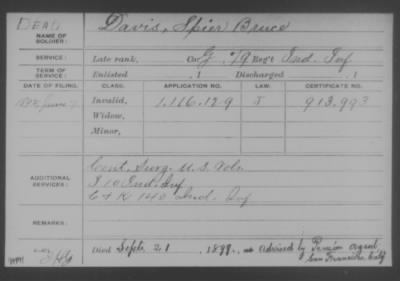 DEAD
NAME OF SOLDIER: Davis, Spier Bruce
SERVICE: Late rank, Co. G, 79 Reg't Ind. Inf
TERM OF SERVICE: Enlisted , 1 Discharged , 1
DATE OF FILING. CLASS. APPLICATION NO. LAW. CERTIFICATE NO.
June Invalid, 1,116,129 J 913,993
Widow,
Minor,
Cont. Surg. U.S. Vols.
ADDITIONAL SERVICES: I 10 Ind. Inf
C & K 143 Ind. Inf
REMARKS:
Died Sept. 21 1899. Advised by Pension agent
San Francisco, Calif